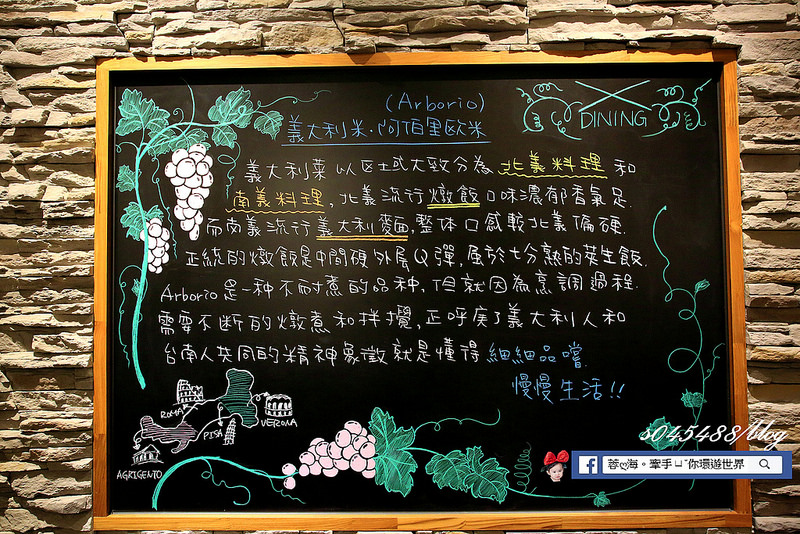 (Arborio)
義大利米·阿柏里歐米
DINING
義大利菜以区域大致分為北義料理和
南義料理,北義流行燉飯口味濃郁香氣足.
而南義流行義大利麵,整体口感較北義偏硬.
正統的燉飯是中間硬外層Q彈,屬於七分熟的夾生飯.
Arborio是一种不耐煮的品种,但就因為烹調過程.
需要不断的燉煮和拌攪,正呼应了義大利人和
台南人共同的精神象徵就是懂得細細品嚐.
慢慢生活!!
ROMA
PISA
VERONA
AGRIGENTO
s045488/blog
蓉ღ海。牽手ㄩˇ你環遊世界